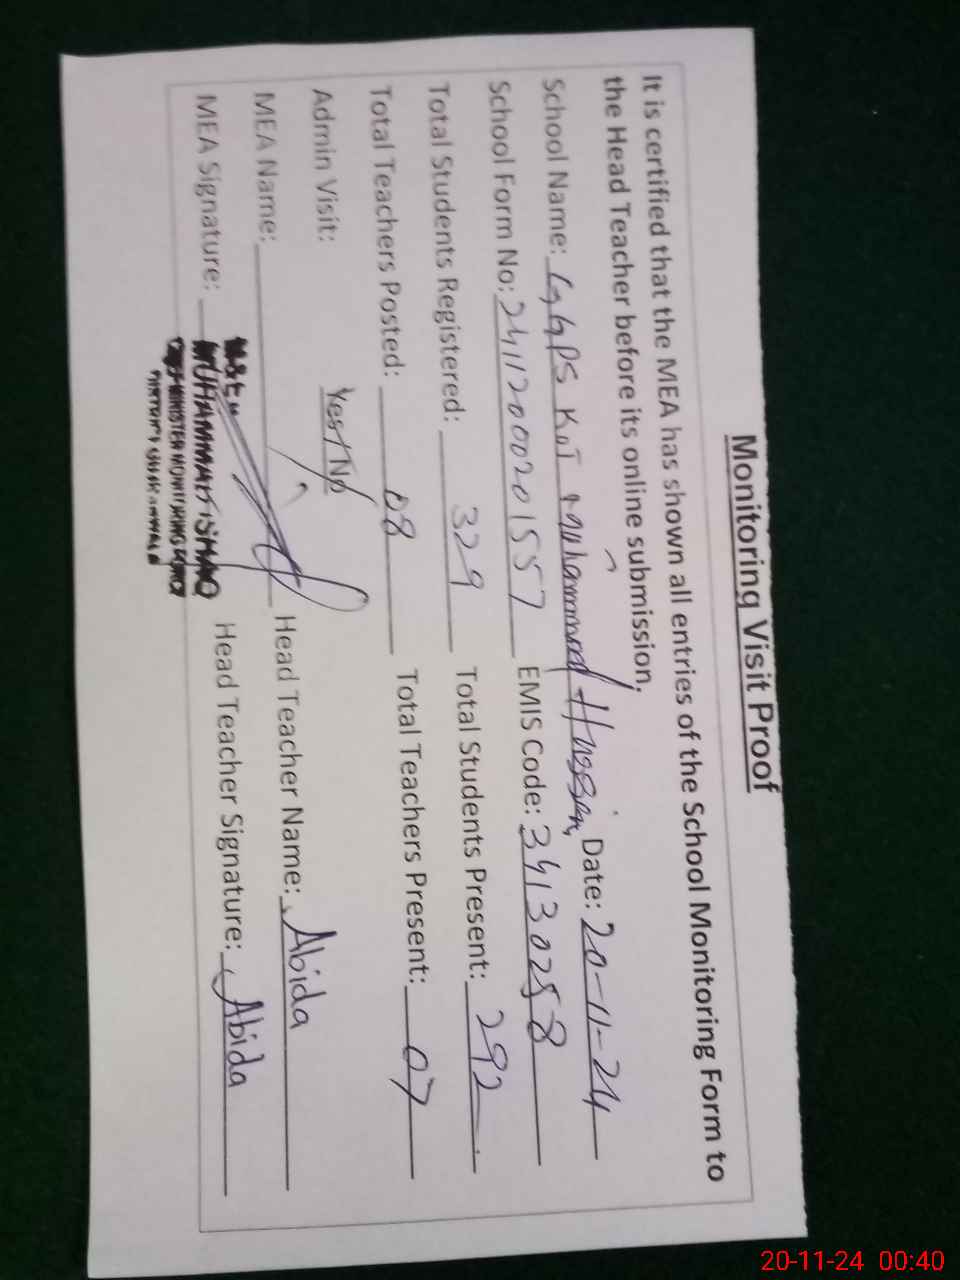 Monitoring Visit Proof
It is certified that the MEA has shown all entries of the School Monitoring Form to
the Head Teacher before its online submission.
School Name: GGPS Kot Mohammad Hussain Date: 20-11-24
School Form No: 241120020157 EMIS Code: 34130258
Total Students Registered: 329 Total Students Present: 292
Total Teachers Posted: 08 Total Teachers Present: 07
Admin Visit: Yes/No
MEA Name: Head Teacher Name: Abida
MEA Signature: Head Teacher Signature: Abida
MUHAMMAD ISHAQ
CHIEF MINISTER MONITORING FORCE
20-11-24 00:40